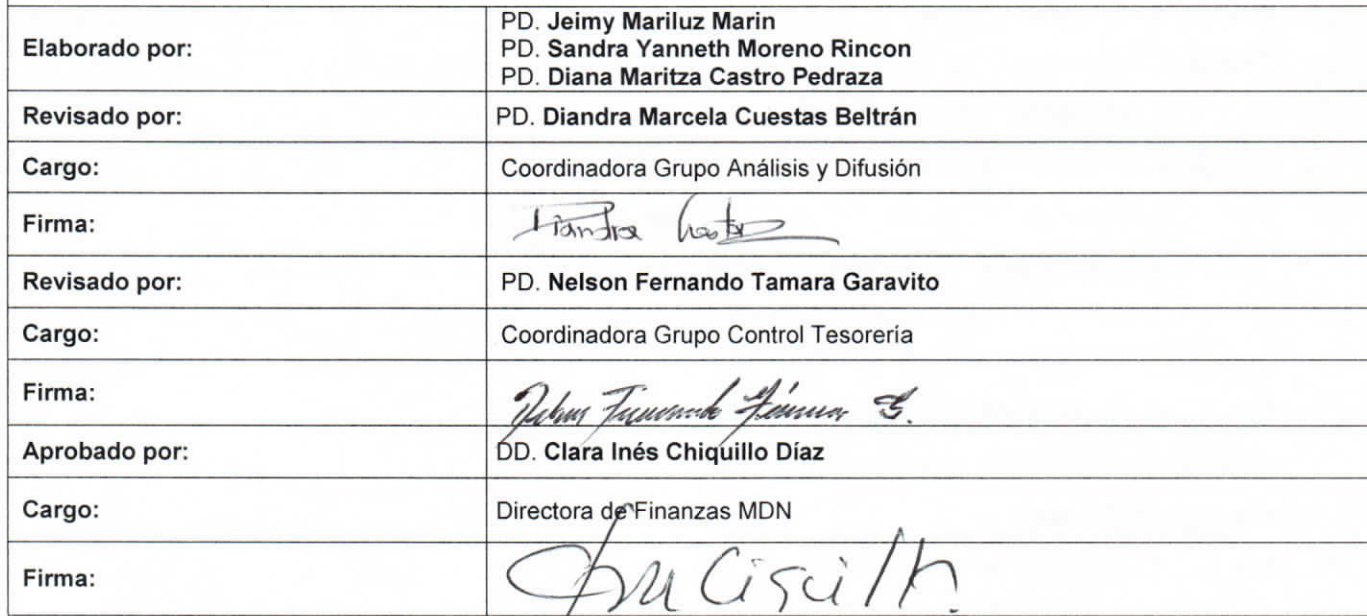 Elaborado por:
PD. Jeimy Mariluz Marin
PD. Sandra Yanneth Moreno Rincon
PD. Diana Maritza Castro Pedraza
Revisado por:
PD. Diandra Marcela Cuestas Beltrán
Cargo:
Coordinadora Grupo Análisis y Difusión
Firma:
Revisado por:
PD. Nelson Fernando Tamara Garavito
Cargo:
Coordinadora Grupo Control Tesorería
Firma:
Aprobado por:
DD. Clara Inés Chiquillo Díaz
Cargo:
Directora de Finanzas MDN
Firma: